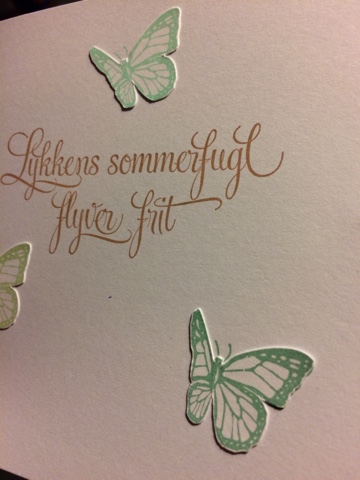 Lykkens sommerfugl
flyver frit